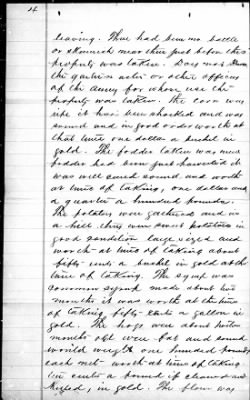 4
leaving. There had been no battle
or skirmish near there just before this
property was taken. Does not know
the quarters actor or other officers
of the Army for whose use the
property was taken. The corn was
ripe it has been shocked and was
sound and in good order worth at
that time one dollar a bushel in
gold. The fodder taken was corn
fodder had been just harvested it
was well cured sound and worth
at time of taking, one dollar and
a quarter a hundred pounds.
The potatoes were gathered and in
a hill they were sweet potatoes in
good condition large sized and
worth at time of taking about
fifty cents a bushel in gold at the
time of taking. The syrup was
common syrup made about two
months it was worth at the time
of taking fifty cents a gallon in
gold. The hogs were about
months old were fat and sound
would weigh one hundred pounds
each net worth at time of taking
ten cents a pound if cleaned and
in gold. The flour was